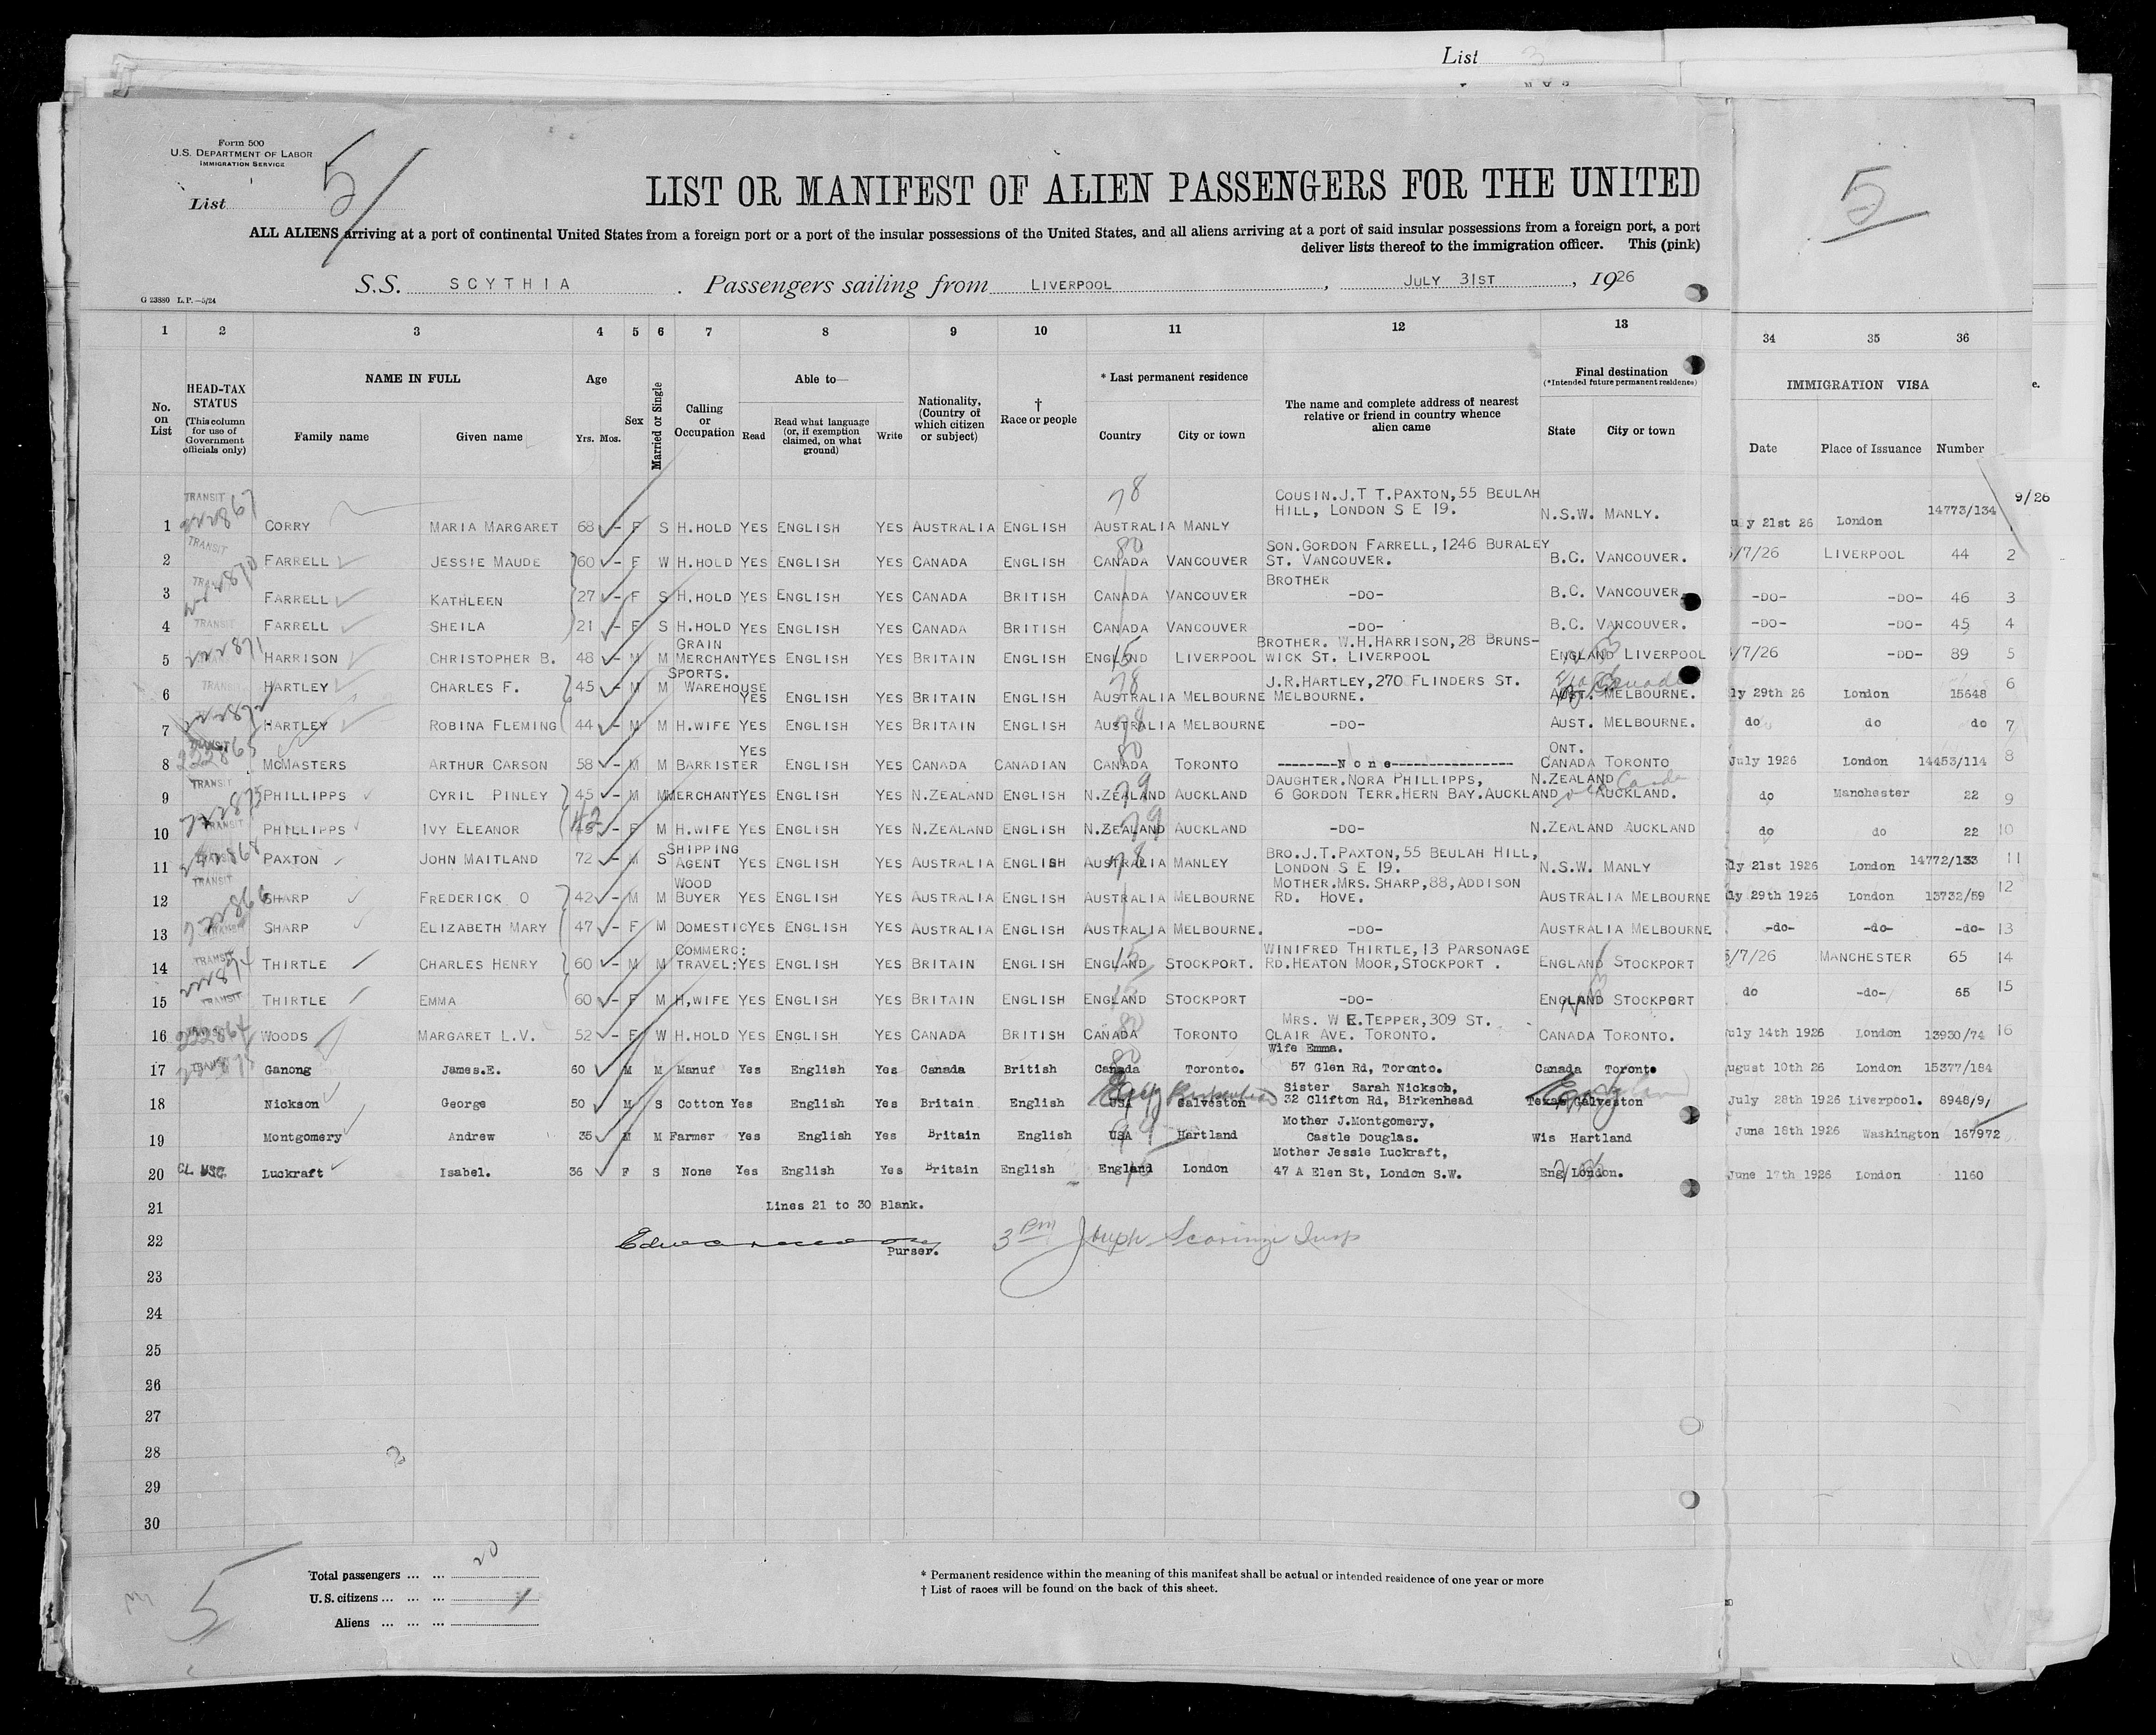 List 3
Form 500
U.S. DEPARTMENT OF LABOR
IMMIGRATION SERVICE
List 5
5
LIST OR MANIFEST OF ALIEN PASSENGERS FOR THE UNITED
ALL ALIENS arriving at a port of continental United States from a foreign port or a port of the insular possessions of the United States, and all aliens arriving at a port of said insular possessions from a foreign port, a port
deliver lists thereof to the immigration officer. This (pink)
S.S. SCYTHIA. Passengers sailing from LIVERPOOL, JULY 31ST, 1926
G 23880 L.P.—5/24
1 2 3 4 5 6 7 8 9 10 11 12 13 34 35 36
No. on List
HEAD-TAX STATUS
(This column for use of Government officials only)
NAME IN FULL
Family name Given name
Age
Yrs. Mos.
Sex
Married or Single
Calling or Occupation
Able to—
Read
Read what language (or, if exemption claimed, on what ground)
Write
Nationality, (Country of which citizen or subject)
† Race or people
* Last permanent residence
Country City or town
The name and complete address of nearest relative or friend in country whence alien came
Final destination
(*Intended future permanent residence)
State City or town
IMMIGRATION VISA
Date Place of Issuance Number
9/26
1 TRANSIT 222867 CORRY MARIA MARGARET 68 - F S H.HOLD YES ENGLISH YES AUSTRALIA ENGLISH 78 AUSTRALIA MANLY COUSIN.J.T T.PAXTON,55 BEULAH HILL, LONDON S E 19. N.S.W. MANLY. uy 21st 26 London 14773/134
2 TRANSIT FARRELL JESSIE MAUDE 60 - F W H.HOLD YES ENGLISH YES CANADA ENGLISH 80 CANADA VANCOUVER SON.GORDON FARRELL,1246 BURALEY ST. VANCOUVER. B.C. VANCOUVER. /7/26 LIVERPOOL 44 2
3 FARRELL KATHLEEN 27 - F S H.HOLD YES ENGLISH YES CANADA BRITISH CANADA VANCOUVER BROTHER -DO- B.C. VANCOUVER. -DO- -DO- 46 3
4 TRANSIT FARRELL SHEILA 21 - F S H.HOLD YES ENGLISH YES CANADA BRITISH CANADA VANCOUVER -DO- B.C. VANCOUVER. -DO- -DO- 45 4
5 222871 HARRISON CHRISTOPHER B. 48 - M M GRAIN MERCHANT YES ENGLISH YES BRITAIN ENGLISH 15 ENGLAND LIVERPOOL BROTHER. W.H.HARRISON,28 BRUNSWICK ST. LIVERPOOL ENGLAND LIVERPOOL /7/26 -DO- 89 5
6 TRANSIT HARTLEY CHARLES F. 45 - M M SPORTS. WAREHOUSE YES ENGLISH YES BRITAIN ENGLISH 78 AUSTRALIA MELBOURNE J.R.HARTLEY,270 FLINDERS ST. MELBOURNE. Via Canada AUST. MELBOURNE. ly 29th 26 London 15648 6
7 222872 HARTLEY ROBINA FLEMING 44 - M M H.WIFE YES ENGLISH YES BRITAIN ENGLISH 78 AUSTRALIA MELBOURNE -DO- AUST. MELBOURNE. do do do 7
8 TRANSIT 222865 MCMASTERS ARTHUR CARSON 58 - M M BARRISTER YES ENGLISH YES CANADA CANADIAN 80 CANADA TORONTO --------None---------------- ONT. CANADA TORONTO July 1926 London 14453/114 8
9 TRANSIT PHILLIPPS CYRIL PINLEY 45 - M M MERCHANT YES ENGLISH YES N.ZEALAND ENGLISH 79 N.ZEALAND AUCKLAND DAUGHTER.NORA PHILLIPPS, 6 GORDON TERR.HERN BAY.AUCKLAND N.ZEALAND AUCKLAND. do Manchester 22 9
10 222873 TRANSIT PHILLIPPS IVY ELEANOR 42 - F M H.WIFE YES ENGLISH YES N.ZEALAND ENGLISH 79 N.ZEALAND AUCKLAND -DO- N.ZEALAND AUCKLAND do do 22 10
11 222868 PAXTON JOHN MAITLAND 72 - M S SHIPPING AGENT YES ENGLISH YES AUSTRALIA ENGLISH 78 AUSTRALIA MANLEY BRO.J.T.PAXTON,55 BEULAH HILL, LONDON S E 19. N.S.W. MANLY ly 21st 1926 London 14772/133 11
12 TRANSIT SHARP FREDERICK O 42 - M M WOOD BUYER YES ENGLISH YES AUSTRALIA ENGLISH AUSTRALIA MELBOURNE MOTHER.MRS.SHARP,88,ADDISON RD. HOVE. AUSTRALIA MELBOURNE ly 29th 1926 London 13732/59 12
13 222866 SHARP ELIZABETH MARY 47 - F M DOMESTIC YES ENGLISH YES AUSTRALIA ENGLISH AUSTRALIA MELBOURNE. -DO- AUSTRALIA MELBOURNE -do- -do- -do- 13
14 TRANSIT THIRTLE CHARLES HENRY 60 - M M COMMERC: TRAVEL: YES ENGLISH YES BRITAIN ENGLISH 15 ENGLAND STOCKPORT. WINIFRED THIRTLE,13 PARSONAGE RD.HEATON MOOR,STOCKPORT . ENGLAND STOCKPORT /7/26 MANCHESTER 65 14
15 222874 TRANSIT THIRTLE EMMA 60 - F M H,WIFE YES ENGLISH YES BRITAIN ENGLISH 15 ENGLAND STOCKPORT -DO- ENGLAND STOCKPORT do -do- 65 15
16 222864 WOODS MARGARET L.V. 52 - F W H.HOLD YES ENGLISH YES CANADA BRITISH 80 CANADA TORONTO MRS. W E.TEPPER,309 ST. CLAIR AVE. TORONTO. CANADA TORONTO. uly 14th 1926 London 13930/74 16
17 TRANSIT Ganong James.E. 60 M M Manuf Yes English Yes Canada British 80 Canada Toronto. Wife Emma. 57 Glen Rd, Toronto. Canada Toronto ugust 10th 26 London 15377/184
18 Nickson George 50 M S Cotton Yes English Yes Britain English USA Galveston Sister Sarah Nickson, 32 Clifton Rd, Birkenhead Texas Galveston July 28th 1926 Liverpool. 8948/9,
19 Montgomery Andrew 35 M M Farmer Yes English Yes Britain English USA Hartland Mother J.Montgomery, Castle Douglas. Wis Hartland June 18th 1926 Washington 167972
20 Luckraft Isabel. 36 F S None Yes English Yes Britain English England London Mother Jessie Luckraft, 47 A Elen St, London S.W. Eng London. June 17th 1926 London 1160
21 Lines 21 to 30 Blank.
22 Purser. 3 PM Joseph Insp
23
24
25
26
27
28
29
30
5
Total passengers ... ... 20
U.S. citizens ... ... ...
Aliens ... ... ...
* Permanent residence within the meaning of this manifest shall be actual or intended residence of one year or more
† List of races will be found on the back of this sheet.